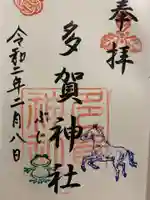 奉拝
多賀神社
令和二年二月八日